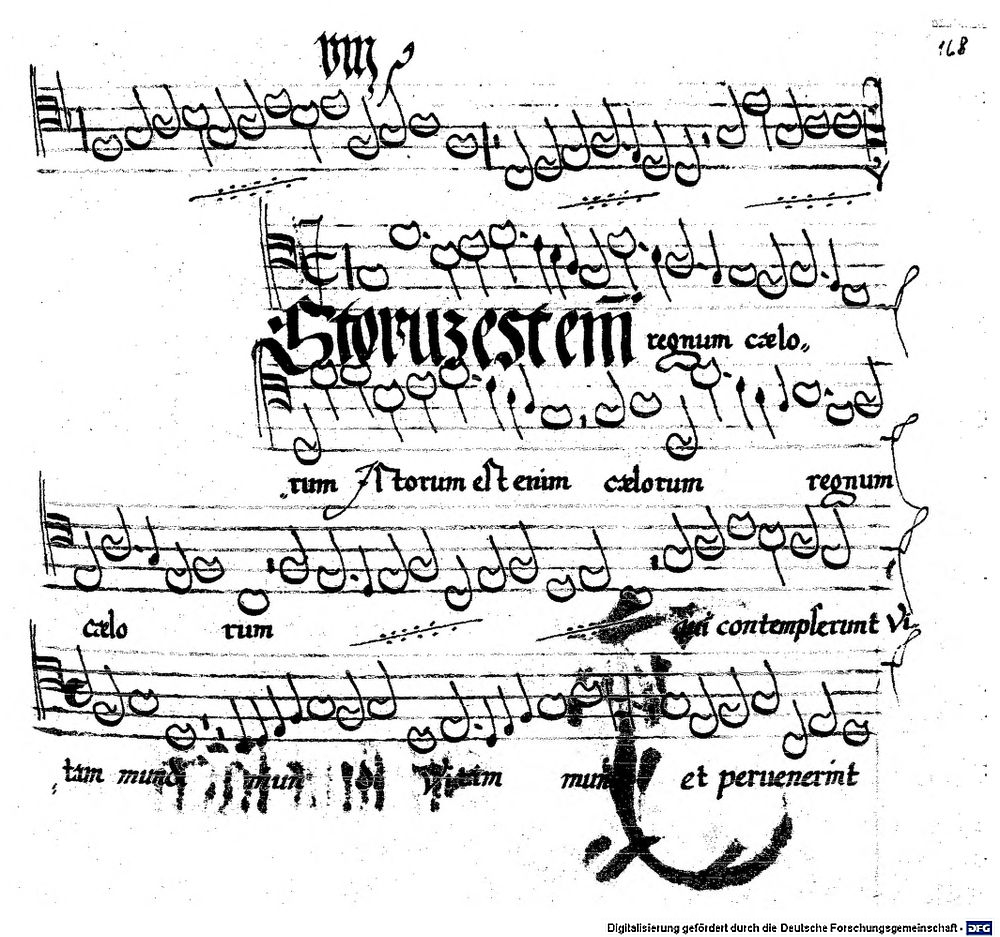 168
VIII
Storuz est em̄ regnum cælo„
rum Istorum est enim cælorum regnum
cælo rum qui contemplerunt Vi„
tam mund mun Vitam mun et peruenerint
Digitalisierung gefördert durch die Deutsche Forschungsgemeinschaft - DFG